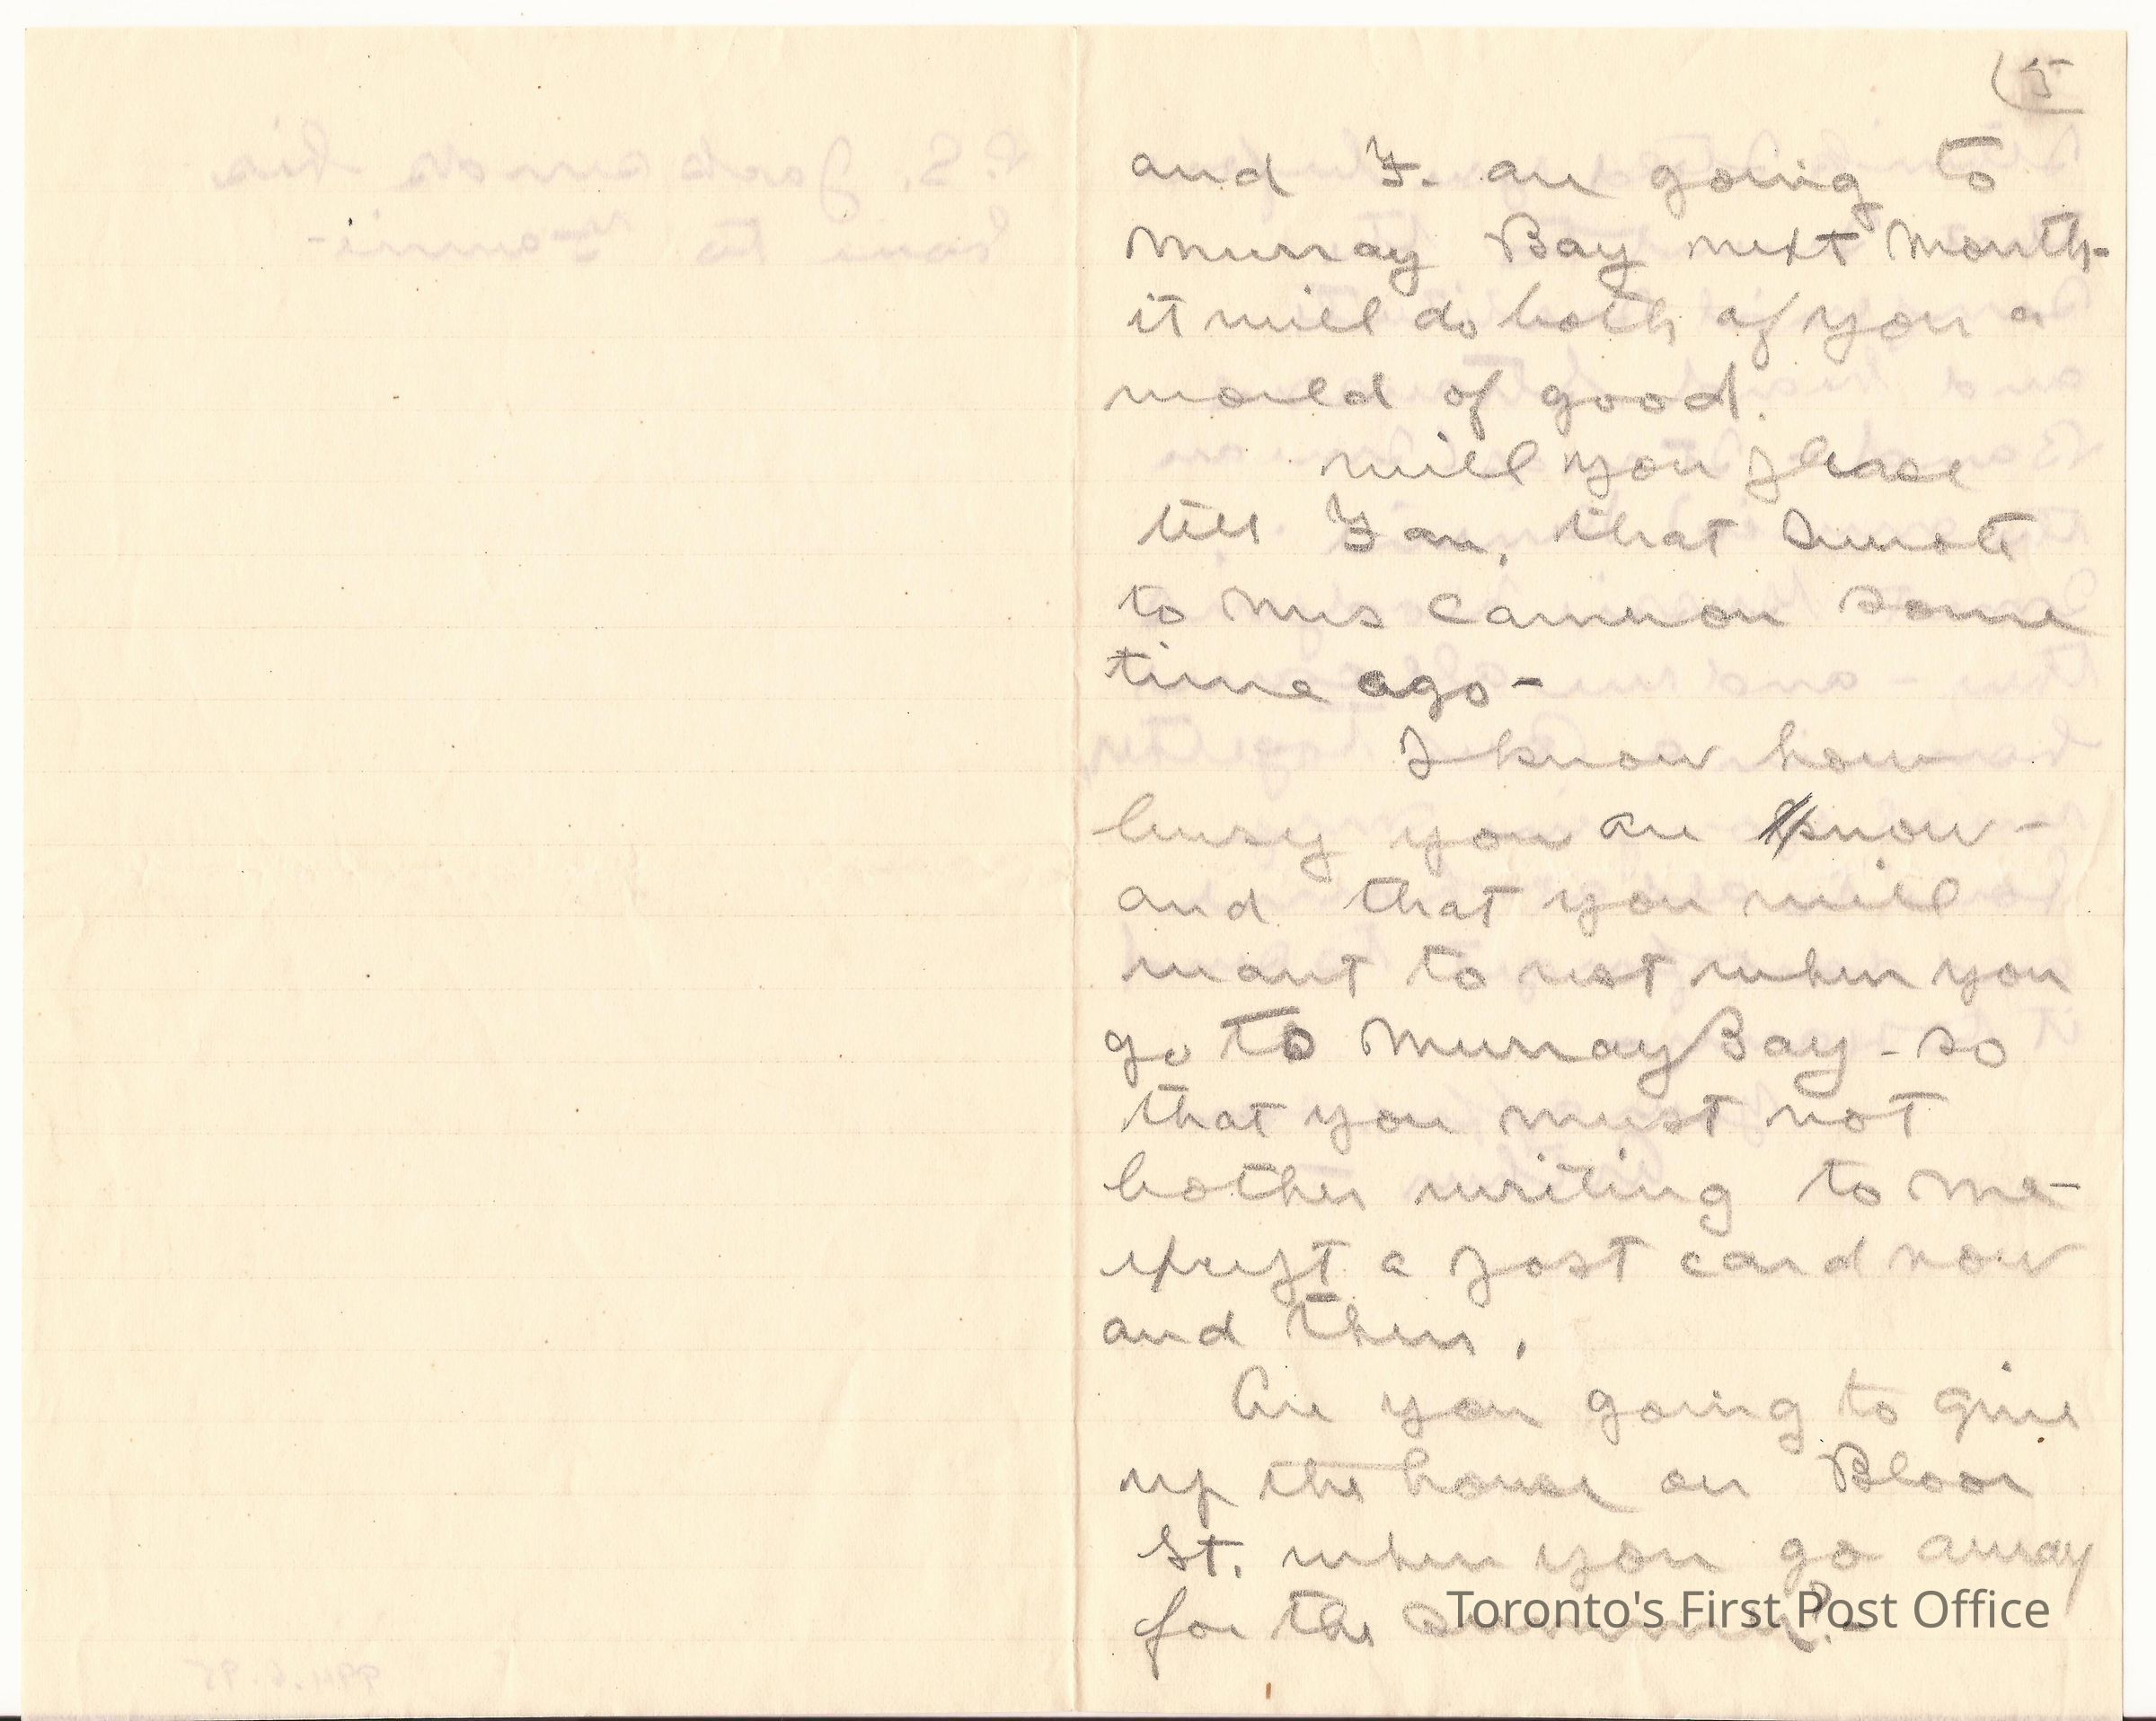 (5
and F. are going to
Murray Bay next month-
it will do both of you a
world of good.
Will you please
tell Fan, that I wrote
to Mrs Cameron some
time ago-
I know how
busy you are know-
and that you will
want to rest when you
go to Murray Bay - so
that you must not
bother writing to me-
except a post card now
and then.
Are you going to give
up the house on Bloor
St. when you go away
for the summer?-
Toronto's First Post Office
P.S. Jack sends his
love to Fannie-
994.6.95